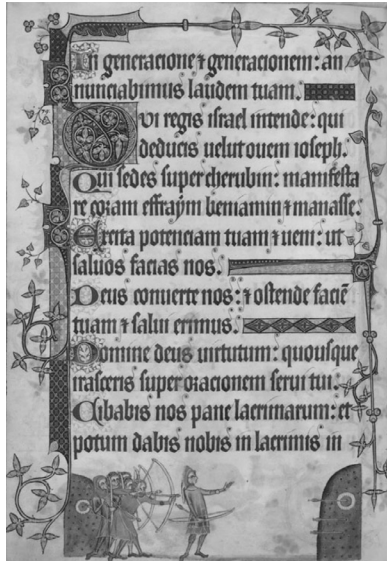 In generacione ⁊ generacionem: an
nunciabimus laudem tuam.
Qui regis israel intende: qui
deducis uelut ouem ioseph.
Qui sedes super cherubin: manifesta
re coram effraym beniamin ⁊ manasse.
Excita potenciam tuam ⁊ ueni: ut
saluos facias nos.
Deus conuerte nos: ⁊ ostende faciē
tuam ⁊ salui erimus.
Domine deus uirtutum: quousque
irasceris super oracionem serui tui.
Cibabis nos pane lacrimarum: et
potum dabis nobis in lacrimis in